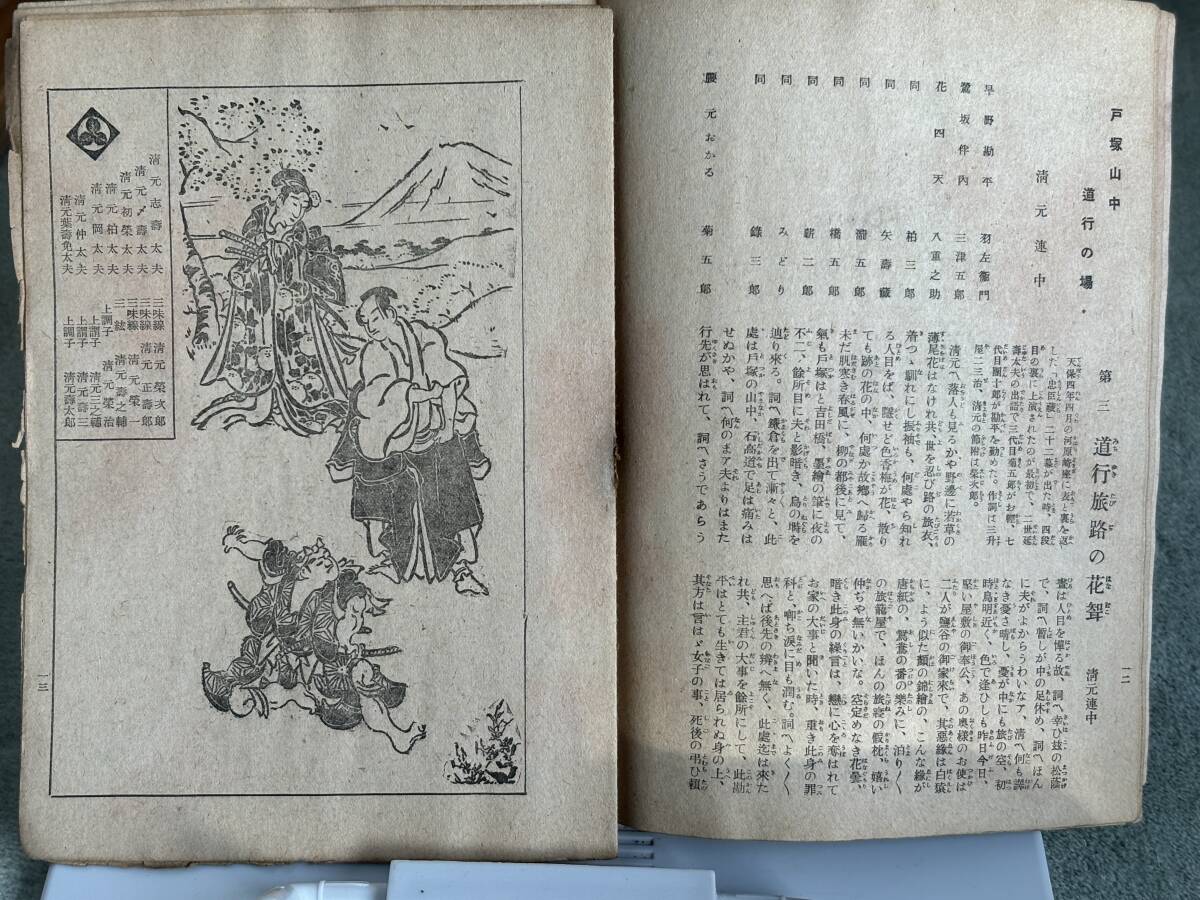 戸塚山中
道行の場
清元連中
早野勘平 羽左衞門
鷺坂伴內 三津五郎
花四天 八重之助
同 柏三郎
同 矢壽藏
同 瀧五郎
同 橘五郎
同 新二郎
同 みどり
同 錄三郎
腰元おかる 菊五郎
第三 道行旅路の花聟 清元連中
一二
天保四年四月の河原崎座に表と裏を返
した「忠臣藏」二十二幕が出た時、四段
目の裏に上演されたのが最初で、二世延
壽太夫の出語で三代目菊五郎がお輕、七
代目團十郎が勘平を勤めた。作詞は三升
屋二三治、清元の節附は榮次郎。
清元〽落人も見るかや野邊に若草の
薄尾花はなけれ共、世を忍び路の旅衣、
着つゝ馴れにし振袖も、何處やら知れ
る人目をば、隱せど色香梅が花、散り
ても跡の花の中、何處か故鄕へ歸る雁
未だ肌寒き春風に、柳の都後に見て、
氣も戸塚はと吉田橋、墨繪の筆に夜の
不二、餘所目に夫と影暗き、鳥の塒を
辿り來る。詞〽鎌倉を出て漸々と、此
處は戸塚の山中、石高道で足は痛みは
せぬかや、詞〽何のまア夫よりはまた
行先が思はれて、詞〽さうであらう
晝は人目を憚る故、詞〽幸ひ玆の松蔭
で、詞〽暫しが中の足休め、詞〽ほん
に夫がよからうわいなア、清〽何も譯
なき憂さ晴し、憂が中にも旅の空、初
時鳥明近く、色で逢ひしも昨日今日、
堅い屋敷の御奉公、あの奥様のお使は
二人が鹽谷の御家來で、其惡緣は白猿
に、よう似た顏の錦繪の、こんな緣が
唐紙の、鴛鴦の番の樂みに、泊り〳〵
の旅籠屋で、ほんの旅寢の假枕、嬉い
仲ぢや無いかいな。空定めなき花曇、
暗き此身の繰言は、戀に心を奪はれて
お家の大事と聞いた時、重き此身の罪
科と、啣ち淚に目も潤む。詞〽よく〳〵
思へば後先の辨へ無く、此處迄は來た
れ共、主君の大事を餘所にして、此勘
平はとても生きては居られぬ身の上、
其方は言はゞ女子の事、死後の弔ひ賴
清元志壽太夫
清元〆壽太夫
清元初榮太夫
清元柏太夫
清元岡太夫
清元仲太夫
清元葉壽免太夫
三味線 清元榮次郎
三味線 清元正壽郎
三味線 清元榮一
三絃 清元壽之輔
上調子 清元榮治
上調子 清元三之輔
上調子 清元壽三
上調子 清元壽太郎
一三